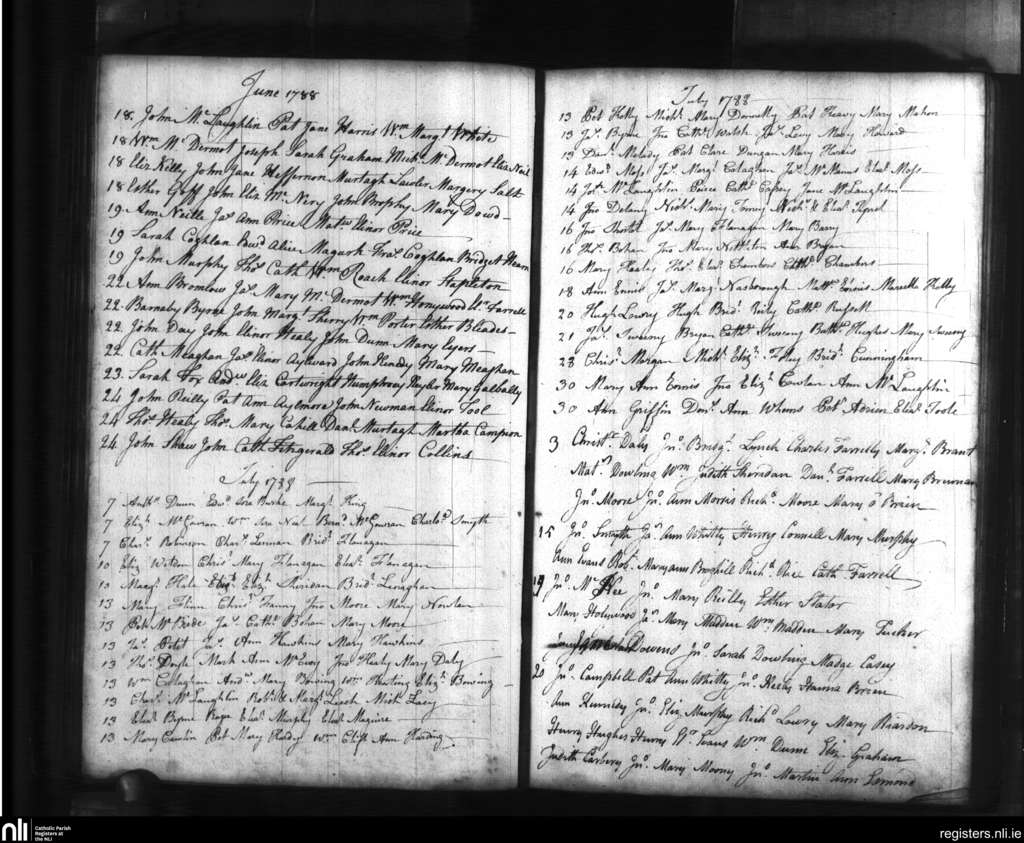 June 1788
18. John Mc Laughlin Pat Jane Harris Wm Margt White
18 Wm Mc Dermot Joseph Sarah Graham Michl Mc Dermot Eliz Neil
18 Eliz Kelly John Jane Heffernon Murtagh Lawler Margery Salt
18 Esther Goff John Eliz Mc Nery John Brophy Mary Dowd
19. Ann Neille Jas Ann Price Matw Elinor Price
19 Sarah Coghlan Edwd Alice Magurk Fras Coghlan Bridget Hearn
19 John Murphy Thos Cath Wm Roach Elinor Stapleton
22 Ann Bromlow Jas Mary Mc Dermot Wm Honywood Farrell
22. Barnaby Byrne John Margt Sherry Wm Porter Esther Bleades
22. John Day John Elinor Healy John Dunn Mary Eyers
22. Cath Meaghan Jas Elinor Aylward John Mary Meaghan
23. Sarah Fox Andw Eliz Cartwright Humphrey Mary Galbally
24 John Reilly Pat Ann Aylmore John Newman Elinor Tool
24 Thos Healy Thos Mary Cahill Danl Murtagh Martha Campion
24 John Shaw John Cath Fitzgerald Thos Elinor Collins
July 1788
7 Dunn Edwd Burke Margt King
7 Elizh McCawran Wm Neal Bernd McCawran Charlo Smyth
7 Charl Robinson Charl Lennan Bridt Flanagan
10 Eliz Chrisr Mary Flanagan Elizh Flanagan
13 Margt Hale Elizh Sheridan Bridt
13 Mary Flinn Christ Jno Moore Mary
13 Pat McBride Jas Cathe Bohan Mary Moore
13 Jas Jas Ann Hawkins Mary Hawkins
13 Thos Doyle Mark Ann McEvoy Jno Healy Mary Daly
13 Wm Callaghan Andw Mary Bowing Wm Elizh Bowing
13 Charl McLaughlin Robt & Margt Leech Michl Lacy
13 Elizh Byrne Roger Elizh Murphy Elizh Maguire
13 Mary Pat Mary Wm Ann Harding
July 1788
13 Pat Kelly Michl Mary Donnelly Pat Heavy Mary Mahon
13 Jas Byrne Jno Cathe Walsh Jas Mary Howard
13 Danl Melady Pat Clare Dungan Mary Harris
14 Edwd Moss Jas Margt Calaghan Jas McManus Elizh Moss
14 Jas McLaughlin Peirce Cathe Casey Jane McLaughlin
14 Jno Delany Nichs Mary Nichs & Elizh
16 Jno Jas Mary Flanagan Mary Barry
16 Bohan Jno Mary Ann Bryan
16 Mary Healy Thos Elizh Chambers Cathe Chambers
18 Ann Ennis Jas Margt Matthw Ennis
20 Hugh Lowry Hugh Bridt Reily Cathe Russell
21 Jas Sweeny Bryan Cathe Sweeny Hughes Mary Sweeny
28 Christ Morgan Michl Elizh Bridt Cunningham
30 Mary Ann Ennis Jno Elizh Ann McLaughlin
30 Ann Griffin Ann Elizh Toole
3 Christr Daly Jno Bridgt Lynch Charles Farrelly Margt Brant
Matw Dowling Wm Judith Sheridan Danl Farrell Mary Brennan
Jno Moore Jno Ann Morris Richd Moore Mary o Brien
15 Jno Smyth Jas Ann Whitty Henry Connell Mary Murphy
Ann Evans Robt Maryann Richd Rice Cath Farrell
19 Jno Mc Kee Jno Mary Reilly Esther Stator
Mary Holywood Jas Mary Madden Wm Madden Mary Tucker
Downs Jno Sarah Dowling Madge Casey
20 Jno Campbell Pat Ann Whitty Jno Hanna Breen
Ann Kennedy Jno Eliz Murphy Richd Lowry Mary Rearson
Henry Hughes Henry Evans Wm Dunn Eliz Graham
Judith Carbery Jno Mary Moony Jno Martin Ann Lemons
nli
Catholic Parish Registers at the NLI
registers.nli.ie